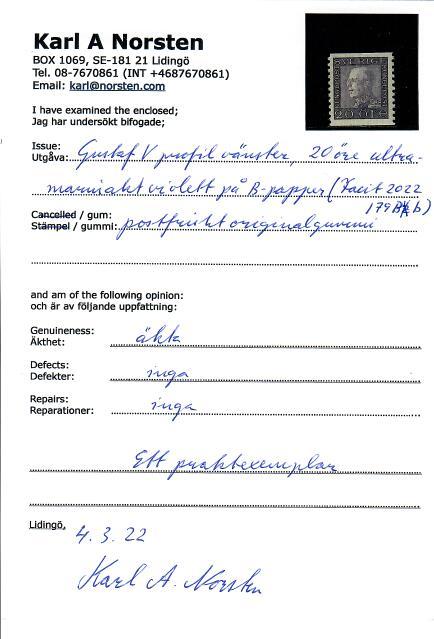 Karl A Norsten
BOX 1069, SE-181 21 Lidingö
Tel. 08-7670861 (INT +4687670861)
Email: karl@norsten.com
SVERIGE
20 ÖRE
I have examined the enclosed;
Jag har undersökt bifogade;
Issue:
Utgåva: Gustaf V profil vänster, 20 öre ultra-
marinakt violett på B-papper (Facit 2022
179 b)
Cancelled / gum:
Stämpel / gummi: postfriskt originalgummi
and am of the following opinion:
och är av följande uppfattning:
Genuineness:
Äkthet: äkta
Defects:
Defekter: inga
Repairs:
Reparationer: inga
Ett praktexemplar
Lidingö, 4.3.22
Karl A. Norsten